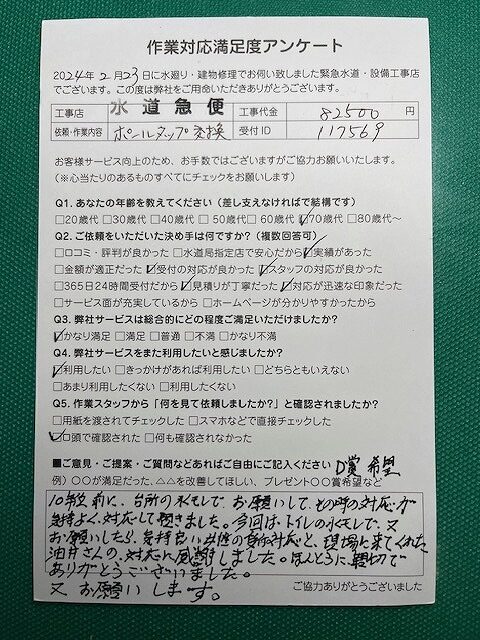 作業対応満足度アンケート
2024年2月23日に水廻り・建物修理でお伺い致しました緊急水道・設備工事店
でございます。この度は弊社をご用命いただきありがとうございます。
工事店 水道急便 工事代金 82500 円
依頼・作業内容 ボールタップ交換 受付ID 117569
お客様サービス向上のため、お手数ではございますがご協力お願いいたします。
(※心当たりのあるものすべてにチェックをお願いします)
Q1. あなたの年齢を教えてください(差し支えなければで結構です)
□20歳代 □30歳代 □40歳代 □50歳代 □60歳代 ☑70歳代 □80歳代～
Q2. ご依頼をいただいた決め手は何ですか?(複数回答可)
□口コミ・評判が良かった □水道局指定店で安心だから ☑実績があった
□金額が適正だった ☑受付の対応が良かった ☑スタッフの対応が良かった
□365日24時間受付だから ☑見積りが丁寧だった ☑対応が迅速な印象だった
□サービス面が充実しているから □ホームページが分かりやすかったから
Q3. 弊社サービスは総合的にどの程度ご満足いただけましたか?
☑かなり満足 □満足 □普通 □不満 □かなり不満
Q4. 弊社サービスをまた利用したいと感じましたか?
☑利用したい □きっかけがあれば利用したい □どちらともいえない
□あまり利用したくない □利用したくない
Q5. 作業スタッフから「何を見て依頼しましたか?」と確認されましたか?
□用紙を渡されてチェックした □スマホなどで直接チェックした
☑口頭で確認された □何も確認されなかった
■ご意見・ご提案・ご質問などあればご自由にご記入ください D賞 希望
例)〇〇が満足だった、△△を改善してほしい、プレゼント〇〇賞希望など
10年位前に、台所の水もれで、お願いして、その時の対応が
気持よく、対応して頂きました。今回は、トイレの水もれで、又
お願いしたら、気持良い対応と、現場に来てくれた
油井さんの、対応に感謝しました。ほんとうに、親切で
ありがとうございました。
又 お願いします。
ご協力ありがとうございました